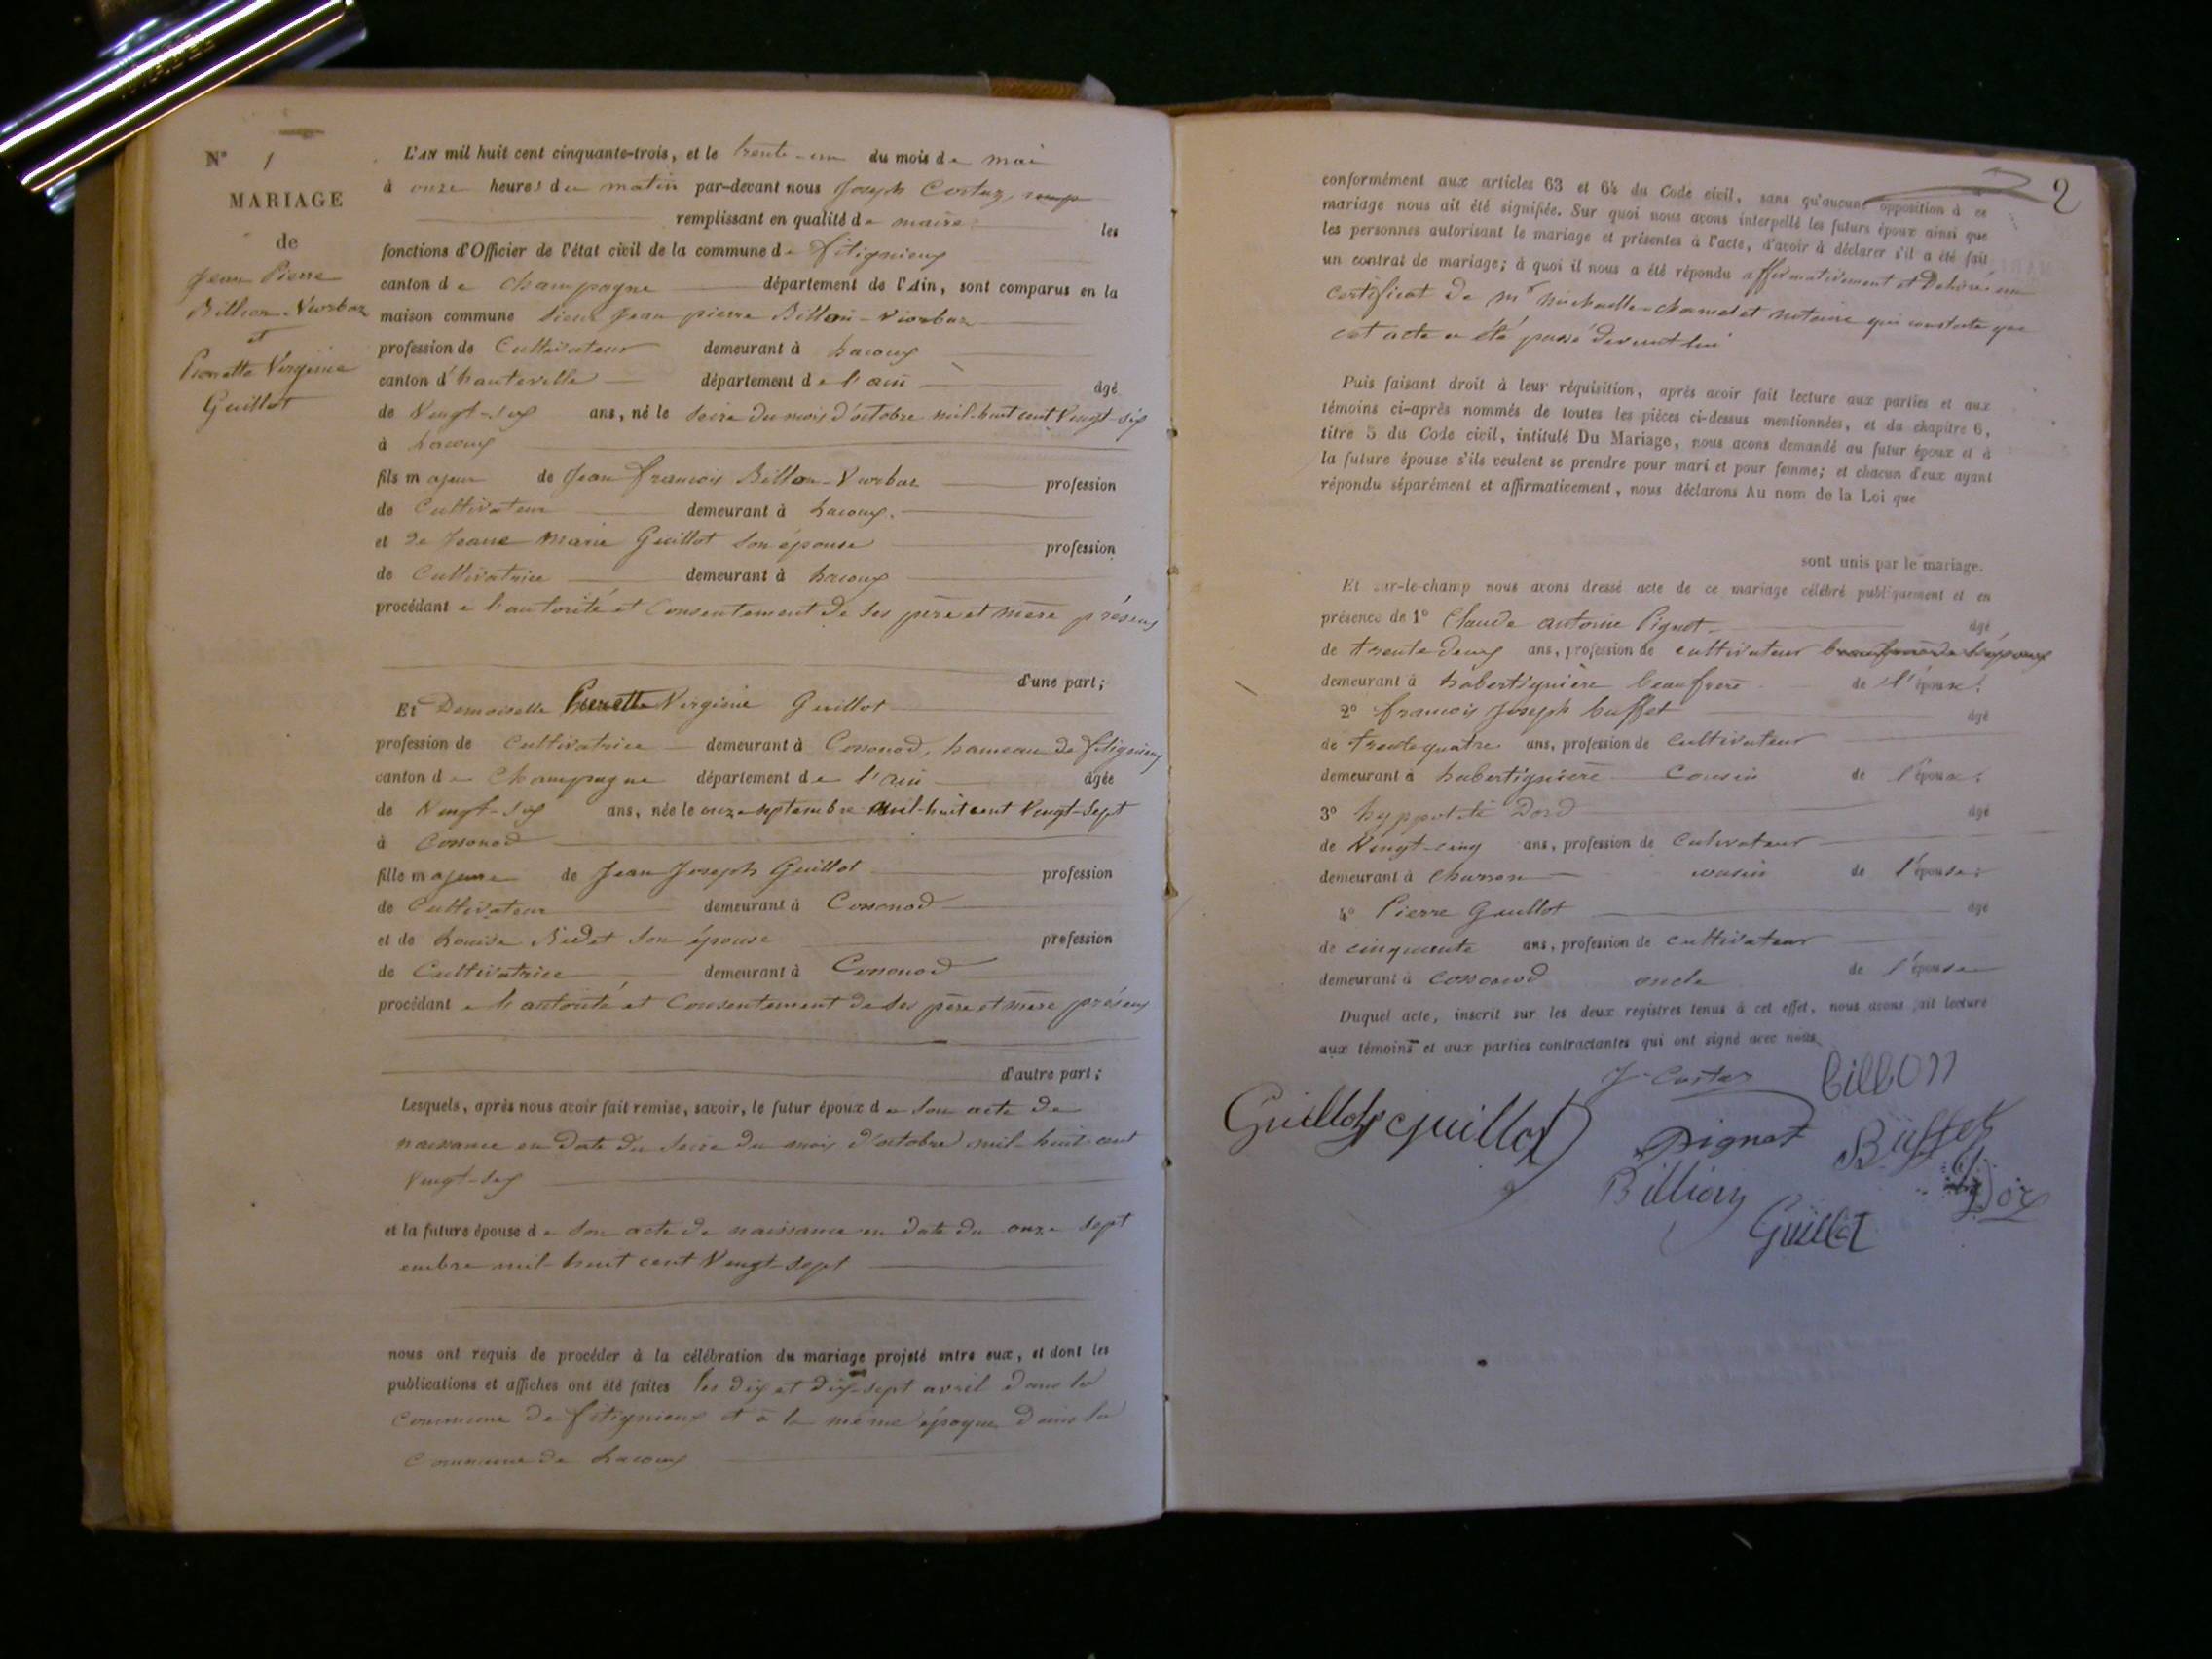 N° 1
MARIAGE
de
Jean Pierre
Billion Viorbaz
et
Pierrette Virginie
Guillot
L'AN mil huit cent cinquante-trois, et le trente-un du mois de mai
à onze heures du matin par-devant nous Joseph Costaz
remplissant en qualité de maire les
fonctions d'Officier de l'état civil de la commune de fitignieux
canton de Champagne département de l'Ain, sont comparus en la
maison commune Sieur Jean pierre Billon-Viorbaz
profession de Cultivateur demeurant à Lacoux
canton d'hauteville département de l'ain âgé
de Vingt-six ans, né le seize du mois d'octobre mil-huit cent Vingt-six
à Lacoux
fils majeur de Jean françois Billon-Viorbaz profession
de Cultivateur demeurant à Lacoux.
et de Jeane Marie Guillot son épouse profession
de Cultivatrice demeurant à Lacoux
procédant e l'autorité et Consentement de ses père et mère présens
d'une part;
Et Demoiselle Pierrette Virginie Guillot
profession de Cultivatrice demeurant à Cossonod, hameau de fitignieux
canton de Champagne département de l'ain âgée
de Vingt-six ans, née le onze septembre mil-huit cent Vingt-Sept
à Cossonod
fille majeure de Jean Joseph Guillot profession
de Cultivateur demeurant à Cossonod
et de Louise son épouse profession
de Cultivatrice demeurant à Cossonod
procédant e l'autorité et Consentement de ses père et mère présens
d'autre part;
Lesquels, après nous avoir fait remise, savoir, le futur époux de son acte de
naissance en date du seize du mois d'octobre mil-huit-cent
Vingt-six
et la future épouse de son acte de naissance en date du onze sept
embre mil-huit cent Vingt-sept
nous ont requis de procéder à la célébration du mariage projeté entre eux, et dont les
publications et affiches ont été faites les dix et dix-sept avril dans la
Commune de fitignieux et à la même époque dans la
commune de Lacoux
2
conformément aux articles 63 et 64 du Code civil, sans qu'aucune opposition à ce
mariage nous ait été signifiée. Sur quoi nous avons interpellé les futurs époux ainsi que
les personnes autorisant le mariage et présentes à l'acte, d'avoir à déclarer s'il a été fait
un contrat de mariage; à quoi il nous a été répondu affirmativement et délivré un
certificat de mr notaire qui constate que
cet acte a été passé devant lui
Puis faisant droit à leur réquisition, après avoir fait lecture aux parties et aux
témoins ci-après nommés de toutes les pièces ci-dessus mentionnées, et du chapitre 6,
titre 5 du Code civil, intitulé Du Mariage, nous avons demandé au futur époux et à
la future épouse s'ils veulent se prendre pour mari et pour femme; et chacun d'eux ayant
répondu séparément et affirmativement, nous déclarons Au nom de la Loi que
sont unis par le mariage.
Et sur-le-champ nous avons dressé acte de ce mariage célébré publiquement et en
présence de 1° Claude antoine Pignot âgé
de trente deux ans, profession de cultivateur
demeurant à habertignière beaufrère de l'époux;
2° françois Joseph buffet âgé
de trente quatre ans, profession de cultivateur
demeurant à habertignière cousin de l'époux;
3° hyppolite Dord âgé
de Vingt-cinq ans, profession de Cultivateur
demeurant à cousin de l'épouse;
4° Pierre Guillot âgé
de cinquante ans, profession de cultivateur
demeurant à Cossonod oncle de l'épouse
Duquel acte, inscrit sur les deux registres tenus à cet effet, nous avons fait lecture
aux témoins et aux parties contractantes qui ont signé avec nous
J. Costaz billon
Guillot guillot
Pignot Buffet
Billion
Guillot